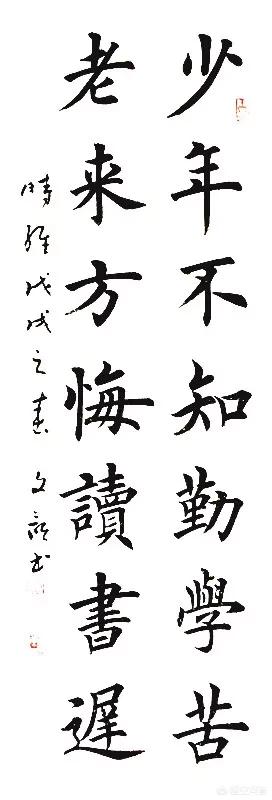 少年不知勤學苦
老来方悔讀書遲
時維戊戌之春 文 書